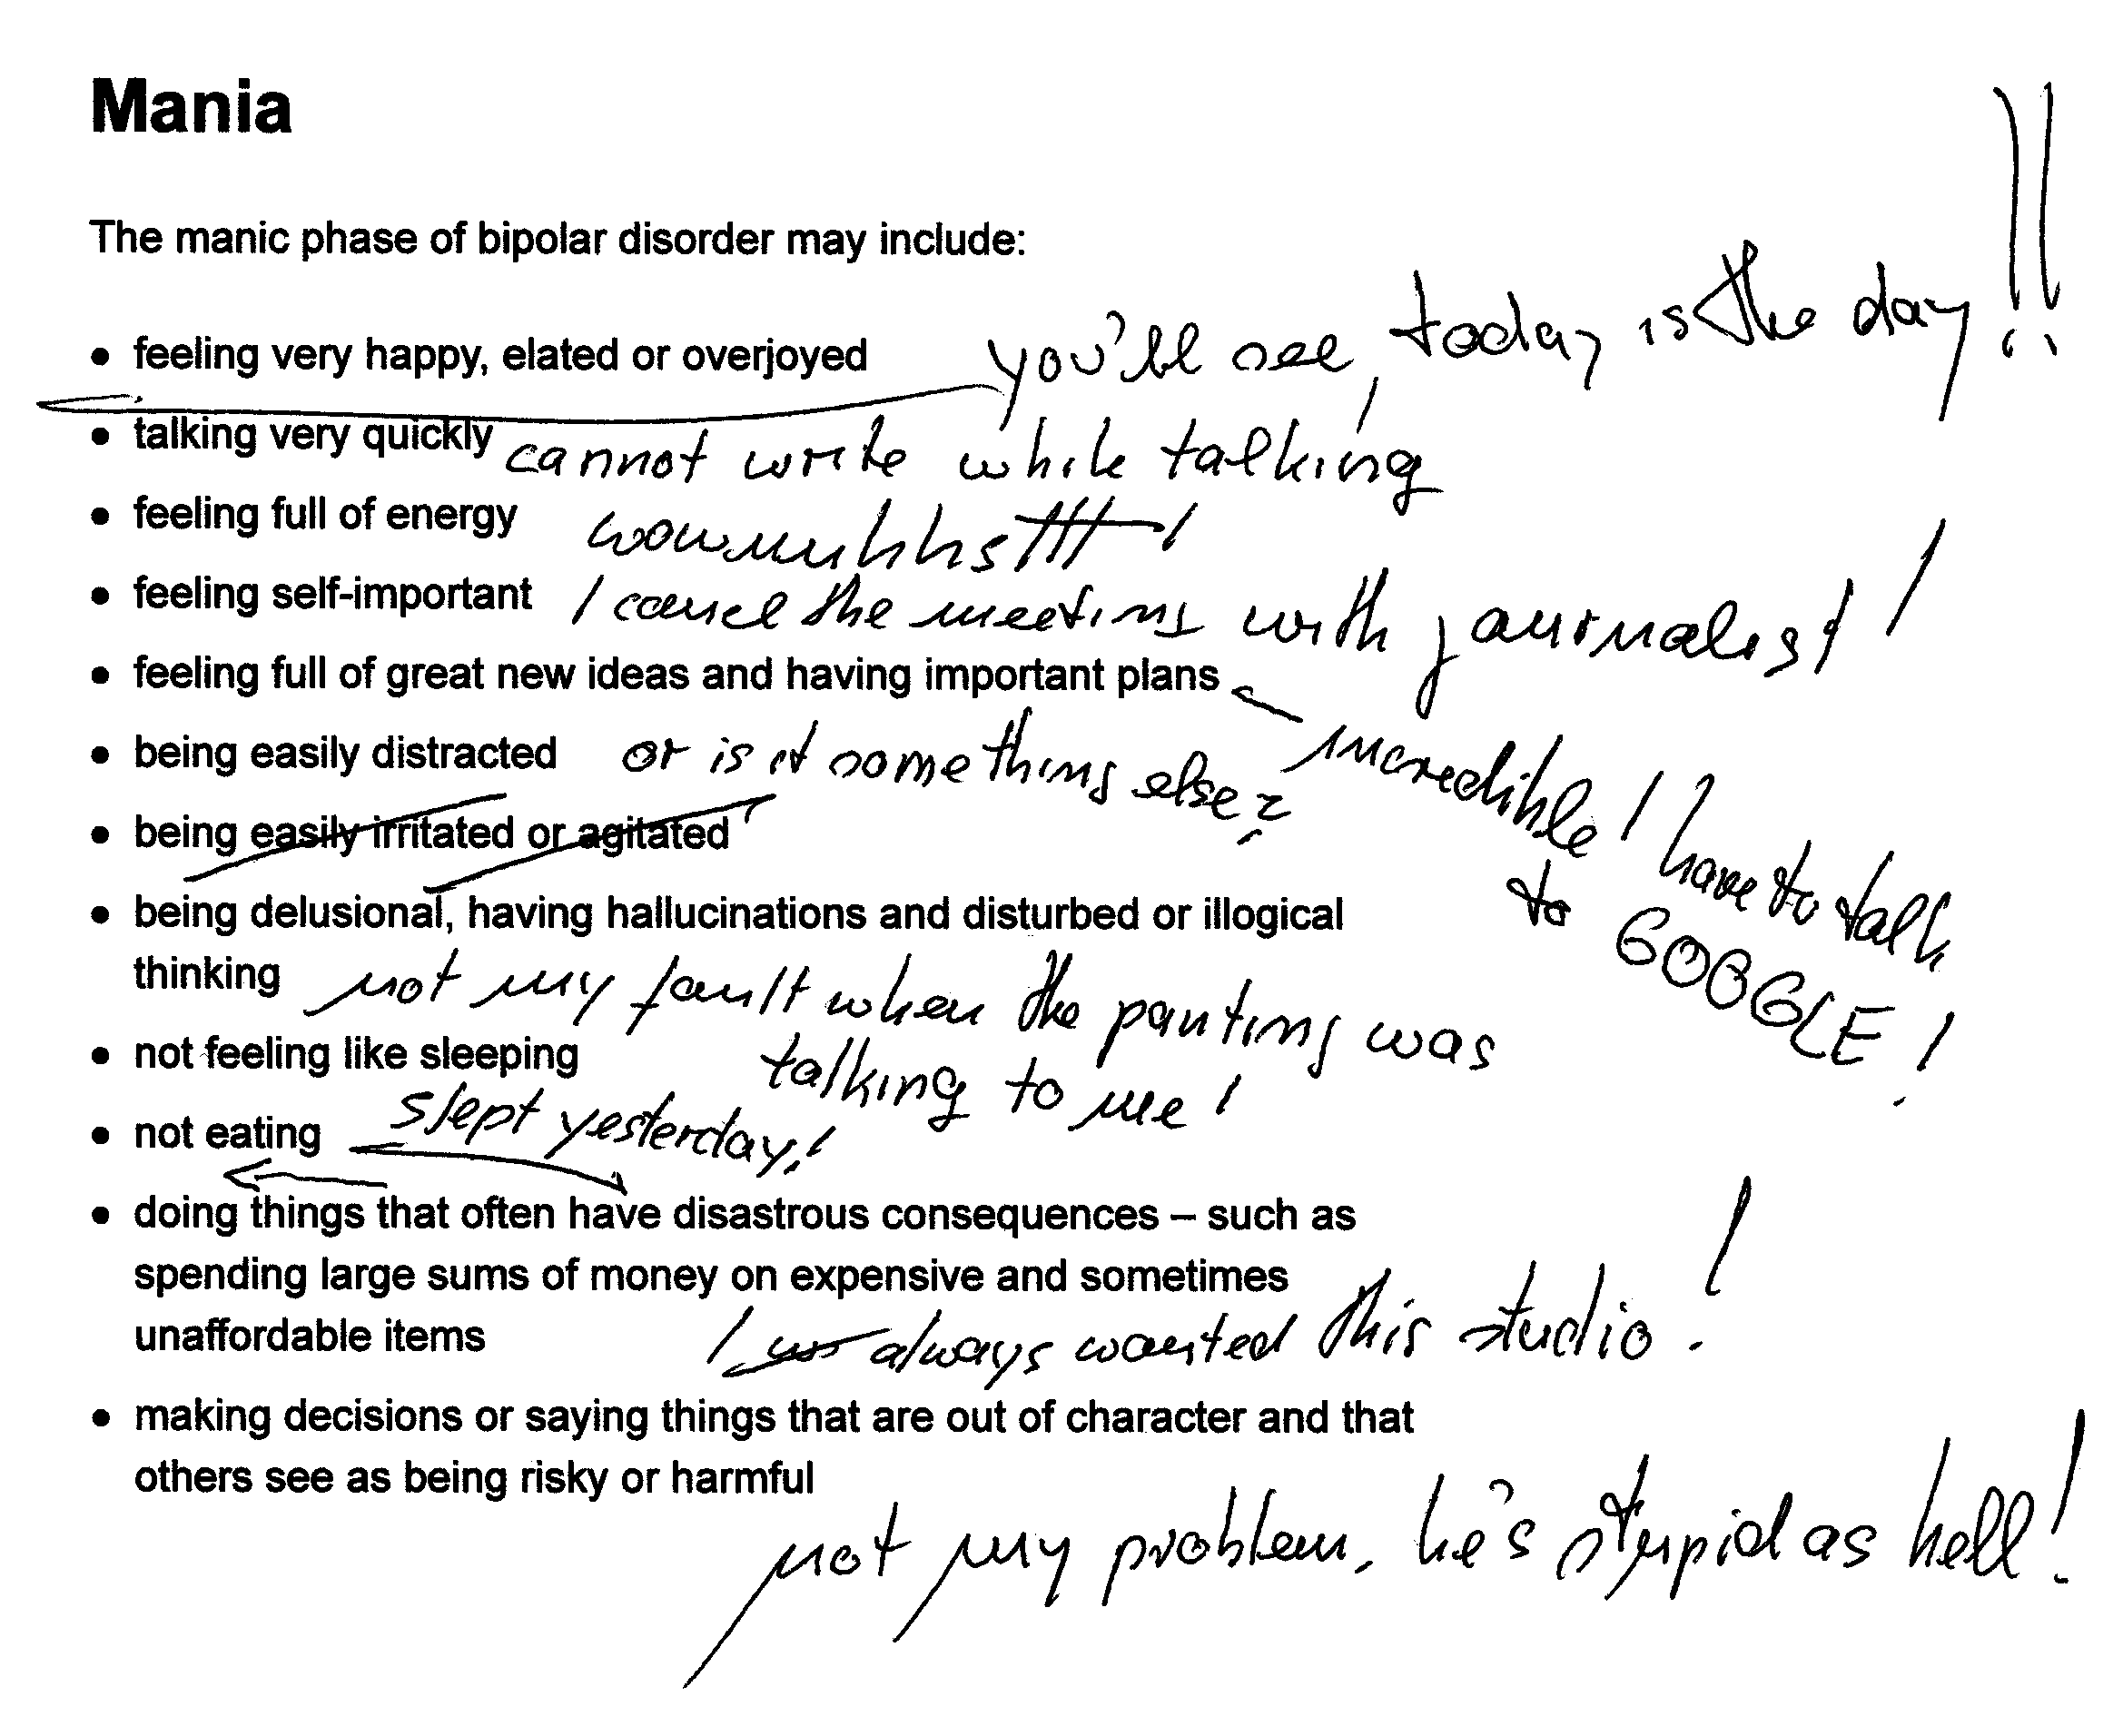 Mania
The manic phase of bipolar disorder may include:
• feeling very happy, elated or overjoyed
you'll see, today is the day!!
• talking very quickly
cannot write while talking!
• feeling full of energy
• feeling self-important
I cancel the meeting with journalist!
• feeling full of great new ideas and having important plans
incredible! I have to talk
to GOOGLE!
• being easily distracted
or is it something else?
• being easily irritated or agitated
• being delusional, having hallucinations and disturbed or illogical
thinking
not my fault when the painting was
talking to me!
• not feeling like sleeping
slept yesterday!
• not eating
• doing things that often have disastrous consequences – such as
spending large sums of money on expensive and sometimes
unaffordable items
I always wanted this studio!
• making decisions or saying things that are out of character and that
others see as being risky or harmful
not my problem, he's stupid as hell!